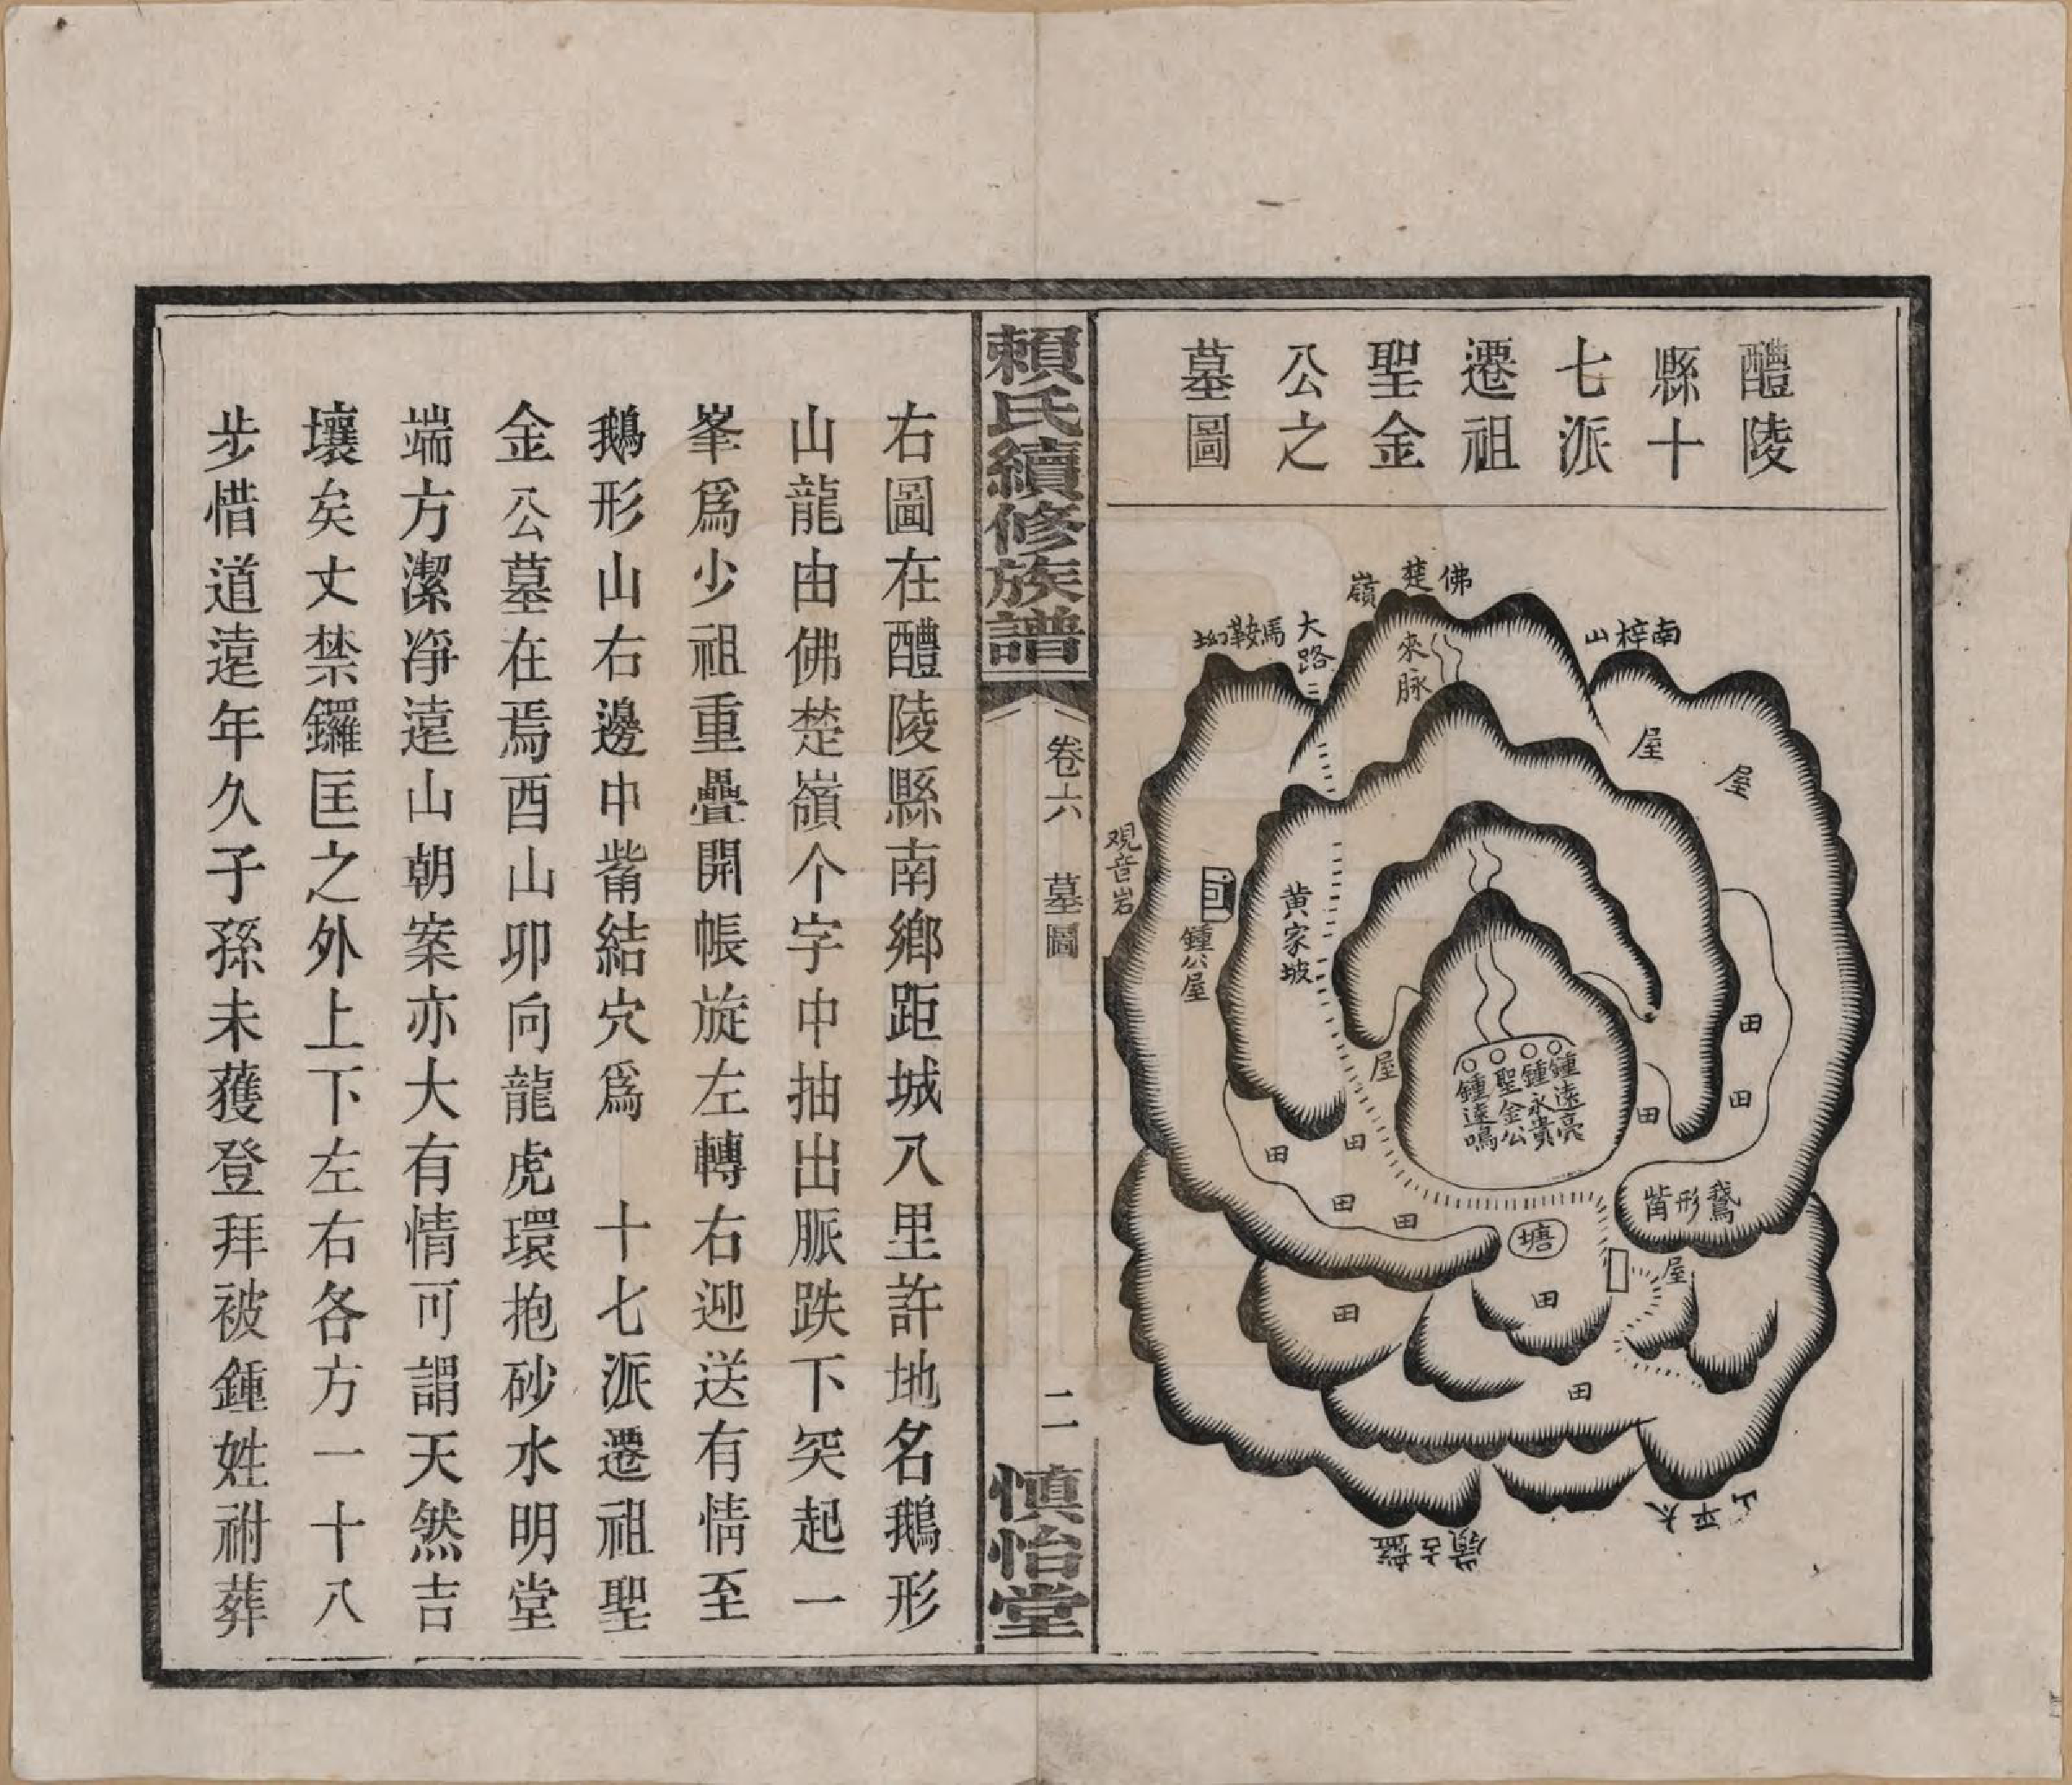 醴陵
縣十
七派
遷祖
聖金
公之
墓圖
佛楚嶺
來脉
南梓山
大路
馬鞍坳
屋
屋
觀音岩
鍾公屋
黄家坡
屋
鍾遠亮
鍾永貴
聖金公
鍾遠鳴
田
田
田
田
田
田
田
鵞形嘴
塘
屋
田
田
田
太平山
嶺
賴氏續修族譜
卷六 墓圖
二
慎怡堂
右圖在醴陵縣南鄉距城八里許地名鵝形
山龍由佛楚嶺个字中抽出脈跌下突起一
峯爲少祖重疊開帳旋左轉右迎送有情至
鵝形山右邊中嘴結穴爲 十七派遷祖聖
金公墓在焉酉山卯向龍虎環抱砂水明堂
端方潔淨遠山朝案亦大有情可謂天然吉
壤矣丈禁鑼匡之外上下左右各方一十八
步惜道遠年久子孫未獲登拜被鍾姓祔葬